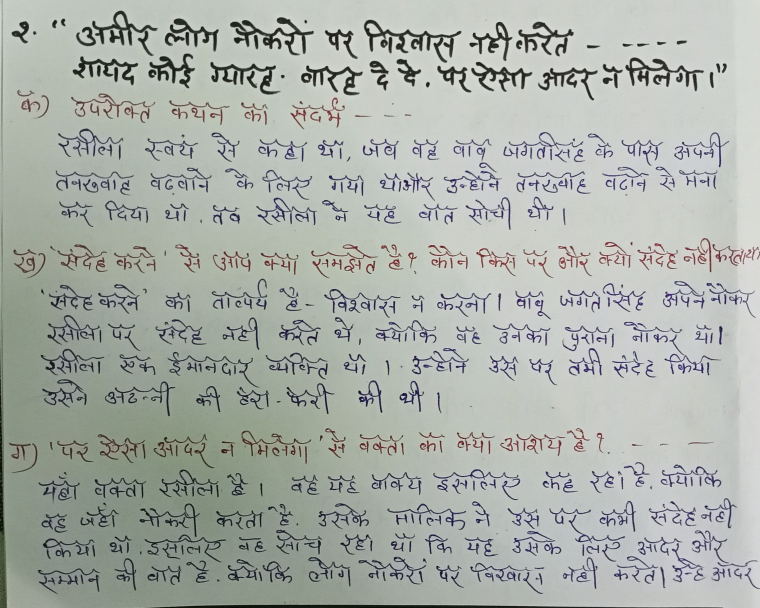 २. “ अमीर लोग नौकरों पर विश्वास नही करते - - - - -
शायद कोई ग्यारह- बारह दे दे. पर ऐसा आदर न मिलेगा।”
क) उपरोक्त कथन का संदर्भ - - - -
रसीला स्वयं से कहा था, जब वह बाबू जगतसिंह के पास अपनी
तनख्वाह बढ़वाने के लिए गया था और उन्होंने तनख्वाह बढ़ाने से मना
कर दिया था. तब रसीला ने यह बात सोची थी।
ख) 'संदेह करने' से आप क्या समझते है? कौन किस पर और क्यों संदेह नही करता था
'संदेह करने' का तात्पर्य है - विश्वास न करना। बाबू जगतसिंह अपने नौकर
रसीला पर संदेह नही करते थे, क्योकि वह उनका पुराना नौकर था।
रसीला एक ईमानदार व्यक्ति था। उन्होने उस पर तभी संदेह किया
उसने अठन्नी की हेरा-फेरी की थी।
ग) 'पर ऐसा आदर न मिलेगा' से वक्ता का क्या आशय है? - - -
यहाँ वक्ता रसीला है। वह यह वाक्य इसलिए कह रहा है. क्योकि
वह जहाँ नौकरी करता है. उसके मालिक ने उस पर कभी संदेह नही
किया था. इसलिए वह सोच रहा था कि यह उसके लिए आदर और
सम्मान की बात है. क्योकि लोग नौकरों पर विश्वास नही करते। उन्हे आदर